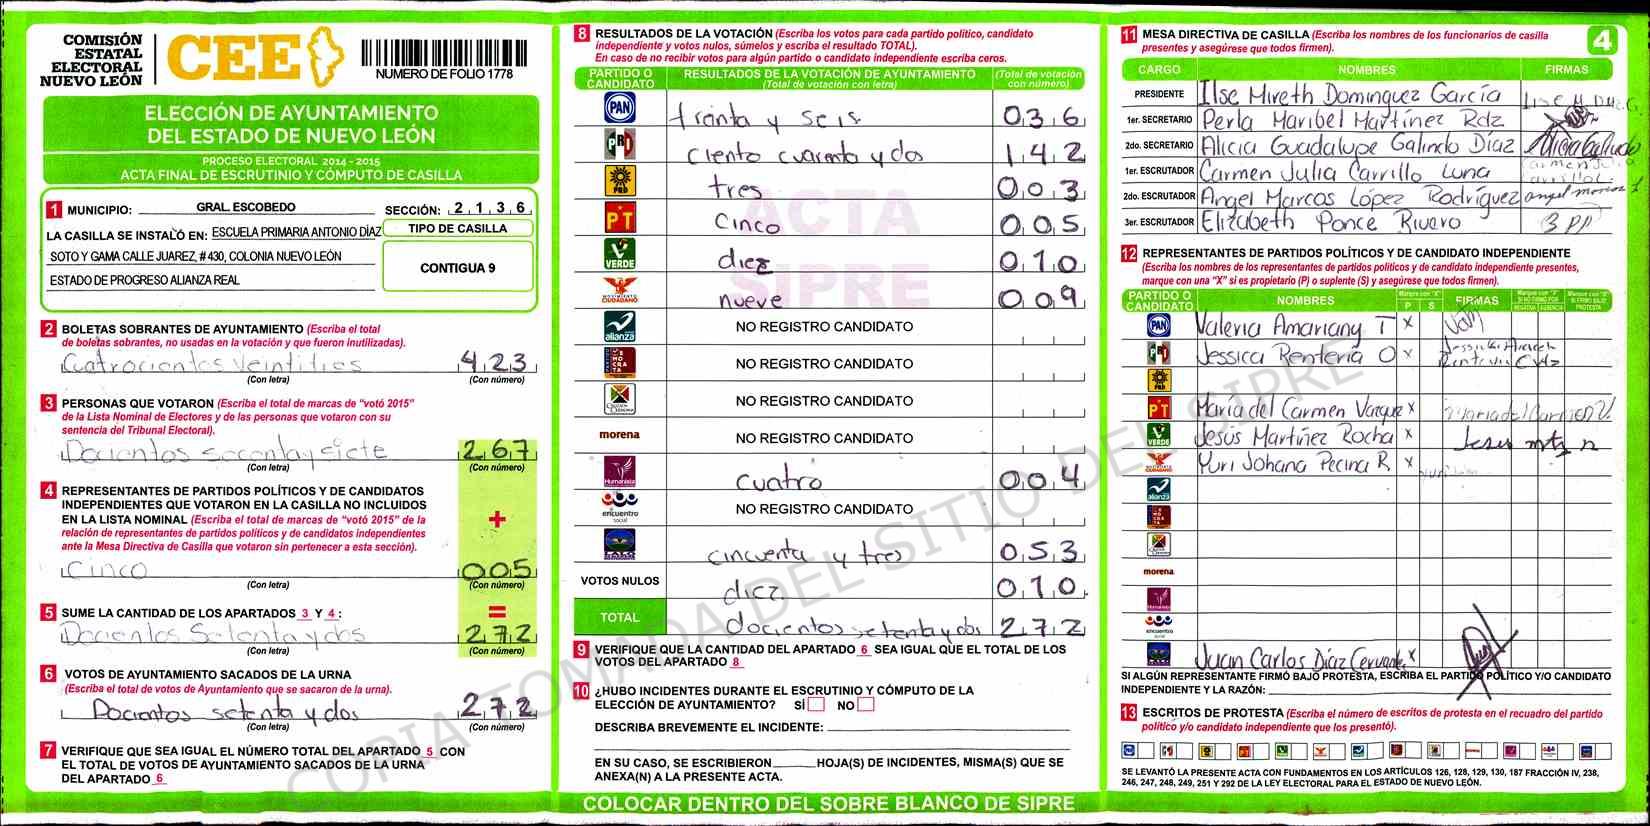 COMISIÓN
ESTATAL
ELECTORAL
NUEVO LEÓN
CEE
NUMERO DE FOLIO 1778
ELECCIÓN DE AYUNTAMIENTO
DEL ESTADO DE NUEVO LEÓN
PROCESO ELECTORAL 2014 - 2015
ACTA FINAL DE ESCRUTINIO Y CÓMPUTO DE CASILLA
1 MUNICIPIO: GRAL. ESCOBEDO SECCIÓN: 2 1 3 6
LA CASILLA SE INSTALÓ EN: ESCUELA PRIMARIA ANTONIO DÍAZ
SOTO Y GAMA CALLE JUAREZ, # 430, COLONIA NUEVO LEÓN
ESTADO DE PROGRESO ALIANZA REAL
TIPO DE CASILLA
CONTIGUA 9
2 BOLETAS SOBRANTES DE AYUNTAMIENTO (Escriba el total
de boletas sobrantes, no usadas en la votación y que fueron inutilizadas).
Cuatrocientos veintitres 4 2 3
(Con letra) (Con número)
3 PERSONAS QUE VOTARON (Escriba el total de marcas de "votó 2015"
de la Lista Nominal de Electores y de las personas que votaron con su
sentencia del Tribunal Electoral).
Docientos secentaysiete 2 6 7
(Con letra) (Con número)
4 REPRESENTANTES DE PARTIDOS POLÍTICOS Y DE CANDIDATOS
INDEPENDIENTES QUE VOTARON EN LA CASILLA NO INCLUIDOS
EN LA LISTA NOMINAL (Escriba el total de marcas de "votó 2015" de la
relación de representantes de partidos políticos y de candidatos independientes
ante la Mesa Directiva de Casilla que votaron sin pertenecer a esta sección).
+
Cinco 0 0 5
(Con letra) (Con número)
5 SUME LA CANTIDAD DE LOS APARTADOS 3 Y 4 : =
Docientos Setenta y dos 2 7 2
(Con letra) (Con número)
6 VOTOS DE AYUNTAMIENTO SACADOS DE LA URNA
(Escriba el total de votos de Ayuntamiento que se sacaron de la urna).
Docientos setenta y dos 2 7 2
(Con letra) (Con número)
7 VERIFIQUE QUE SEA IGUAL EL NÚMERO TOTAL DEL APARTADO 5 CON
EL TOTAL DE VOTOS DE AYUNTAMIENTO SACADOS DE LA URNA
DEL APARTADO 6
8 RESULTADOS DE LA VOTACIÓN (Escriba los votos para cada partido político, candidato
independiente y votos nulos, súmelos y escriba el resultado TOTAL).
En caso de no recibir votos para algún partido o candidato independiente escriba ceros.
PARTIDO O CANDIDATO RESULTADOS DE LA VOTACIÓN DE AYUNTAMIENTO (Total de votación con letra) (Total de votación con número)
PAN treinta y seis 0 3 6
PRI ciento cuarenta y dos 1 4 2
PRD tres 0 0 3
PT Cinco 0 0 5
VERDE diez 0 1 0
MOVIMIENTO CIUDADANO nueve 0 0 9
alianza NO REGISTRO CANDIDATO
DEMOCRATA NO REGISTRO CANDIDATO
NO REGISTRO CANDIDATO
morena NO REGISTRO CANDIDATO
Humanista cuatro 0 0 4
encuentro social NO REGISTRO CANDIDATO
cincuenta y tres 0 5 3
VOTOS NULOS diez 0 1 0
TOTAL docientos setenta y dos 2 7 2
ACTA
SIPRE
9 VERIFIQUE QUE LA CANTIDAD DEL APARTADO 6 SEA IGUAL QUE EL TOTAL DE LOS
VOTOS DEL APARTADO 8
10 ¿HUBO INCIDENTES DURANTE EL ESCRUTINIO Y CÓMPUTO DE LA
ELECCIÓN DE AYUNTAMIENTO? SÍ NO
DESCRIBA BREVEMENTE EL INCIDENTE:
EN SU CASO, SE ESCRIBIERON HOJA(S) DE INCIDENTES, MISMA(S) QUE SE
ANEXA(N) A LA PRESENTE ACTA.
COLOCAR DENTRO DEL SOBRE BLANCO DE SIPRE
11 MESA DIRECTIVA DE CASILLA (Escriba los nombres de los funcionarios de casilla
presentes y asegúrese que todos firmen).
4
CARGO NOMBRES FIRMAS
PRESIDENTE Ilse Mireth Dominguez García
1er. SECRETARIO Perla Maribel Martínez Rdz
2do. SECRETARIO Alicia Guadalupe Galindo Díaz Alicia Galindo
1er. ESCRUTADOR Carmen Julia Carrillo Luna Carmen Julia Carrillo L.
2do. ESCRUTADOR Angel Marcos López Rodríguez angel marcos l
3er. ESCRUTADOR Elizabeth Ponce Rivero
12 REPRESENTANTES DE PARTIDOS POLÍTICOS Y DE CANDIDATO INDEPENDIENTE
(Escriba los nombres de los representantes de partidos políticos y de candidato independiente presentes,
marque con una "X" si es propietario (P) o suplente (S) y asegúrese que todos firmen).
PARTIDO O CANDIDATO NOMBRES Marque con "X" P S FIRMAS Marque con "X" SI NO FIRMÓ POR NEGATIVA AUSENCIA Marque con "X" SI FIRMÓ BAJO PROTESTA
PAN Valeria Amariany T x
PRI Jessica Rentería O x
PRD
PT María del Carmen Vazquez x Maria del Carmen V.
VERDE Jesús Martíñez Rocha x Jesus mtz
MOVIMIENTO CIUDADANO Yuri Johana Pecina R x
alianza
DEMOCRATA
morena
Humanista
encuentro social
Juan Carlos Díaz Cervantes x
SI ALGÚN REPRESENTANTE FIRMÓ BAJO PROTESTA, ESCRIBA EL PARTIDO POLÍTICO Y/O CANDIDATO
INDEPENDIENTE Y LA RAZÓN:
13 ESCRITOS DE PROTESTA (Escriba el número de escritos de protesta en el recuadro del partido
político y/o candidato independiente que los presentó).
SE LEVANTÓ LA PRESENTE ACTA CON FUNDAMENTOS EN LOS ARTÍCULOS 126, 128, 129, 130, 187 FRACCIÓN IV, 238,
246, 247, 248, 249, 251 Y 292 DE LA LEY ELECTORAL PARA EL ESTADO DE NUEVO LEÓN.
COPIA TOMADA DEL SITIO DEL SIPRE